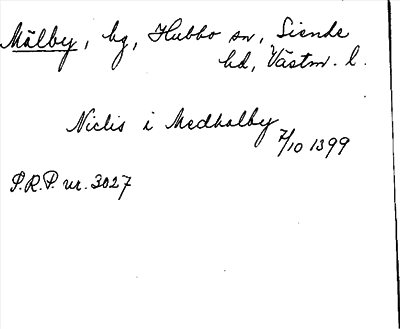 Mälby, by, Hubbo sn, Siende
hd, Västm. l.
Niclis i Medhalby
7/10 1399
S.R.P. nr. 3027